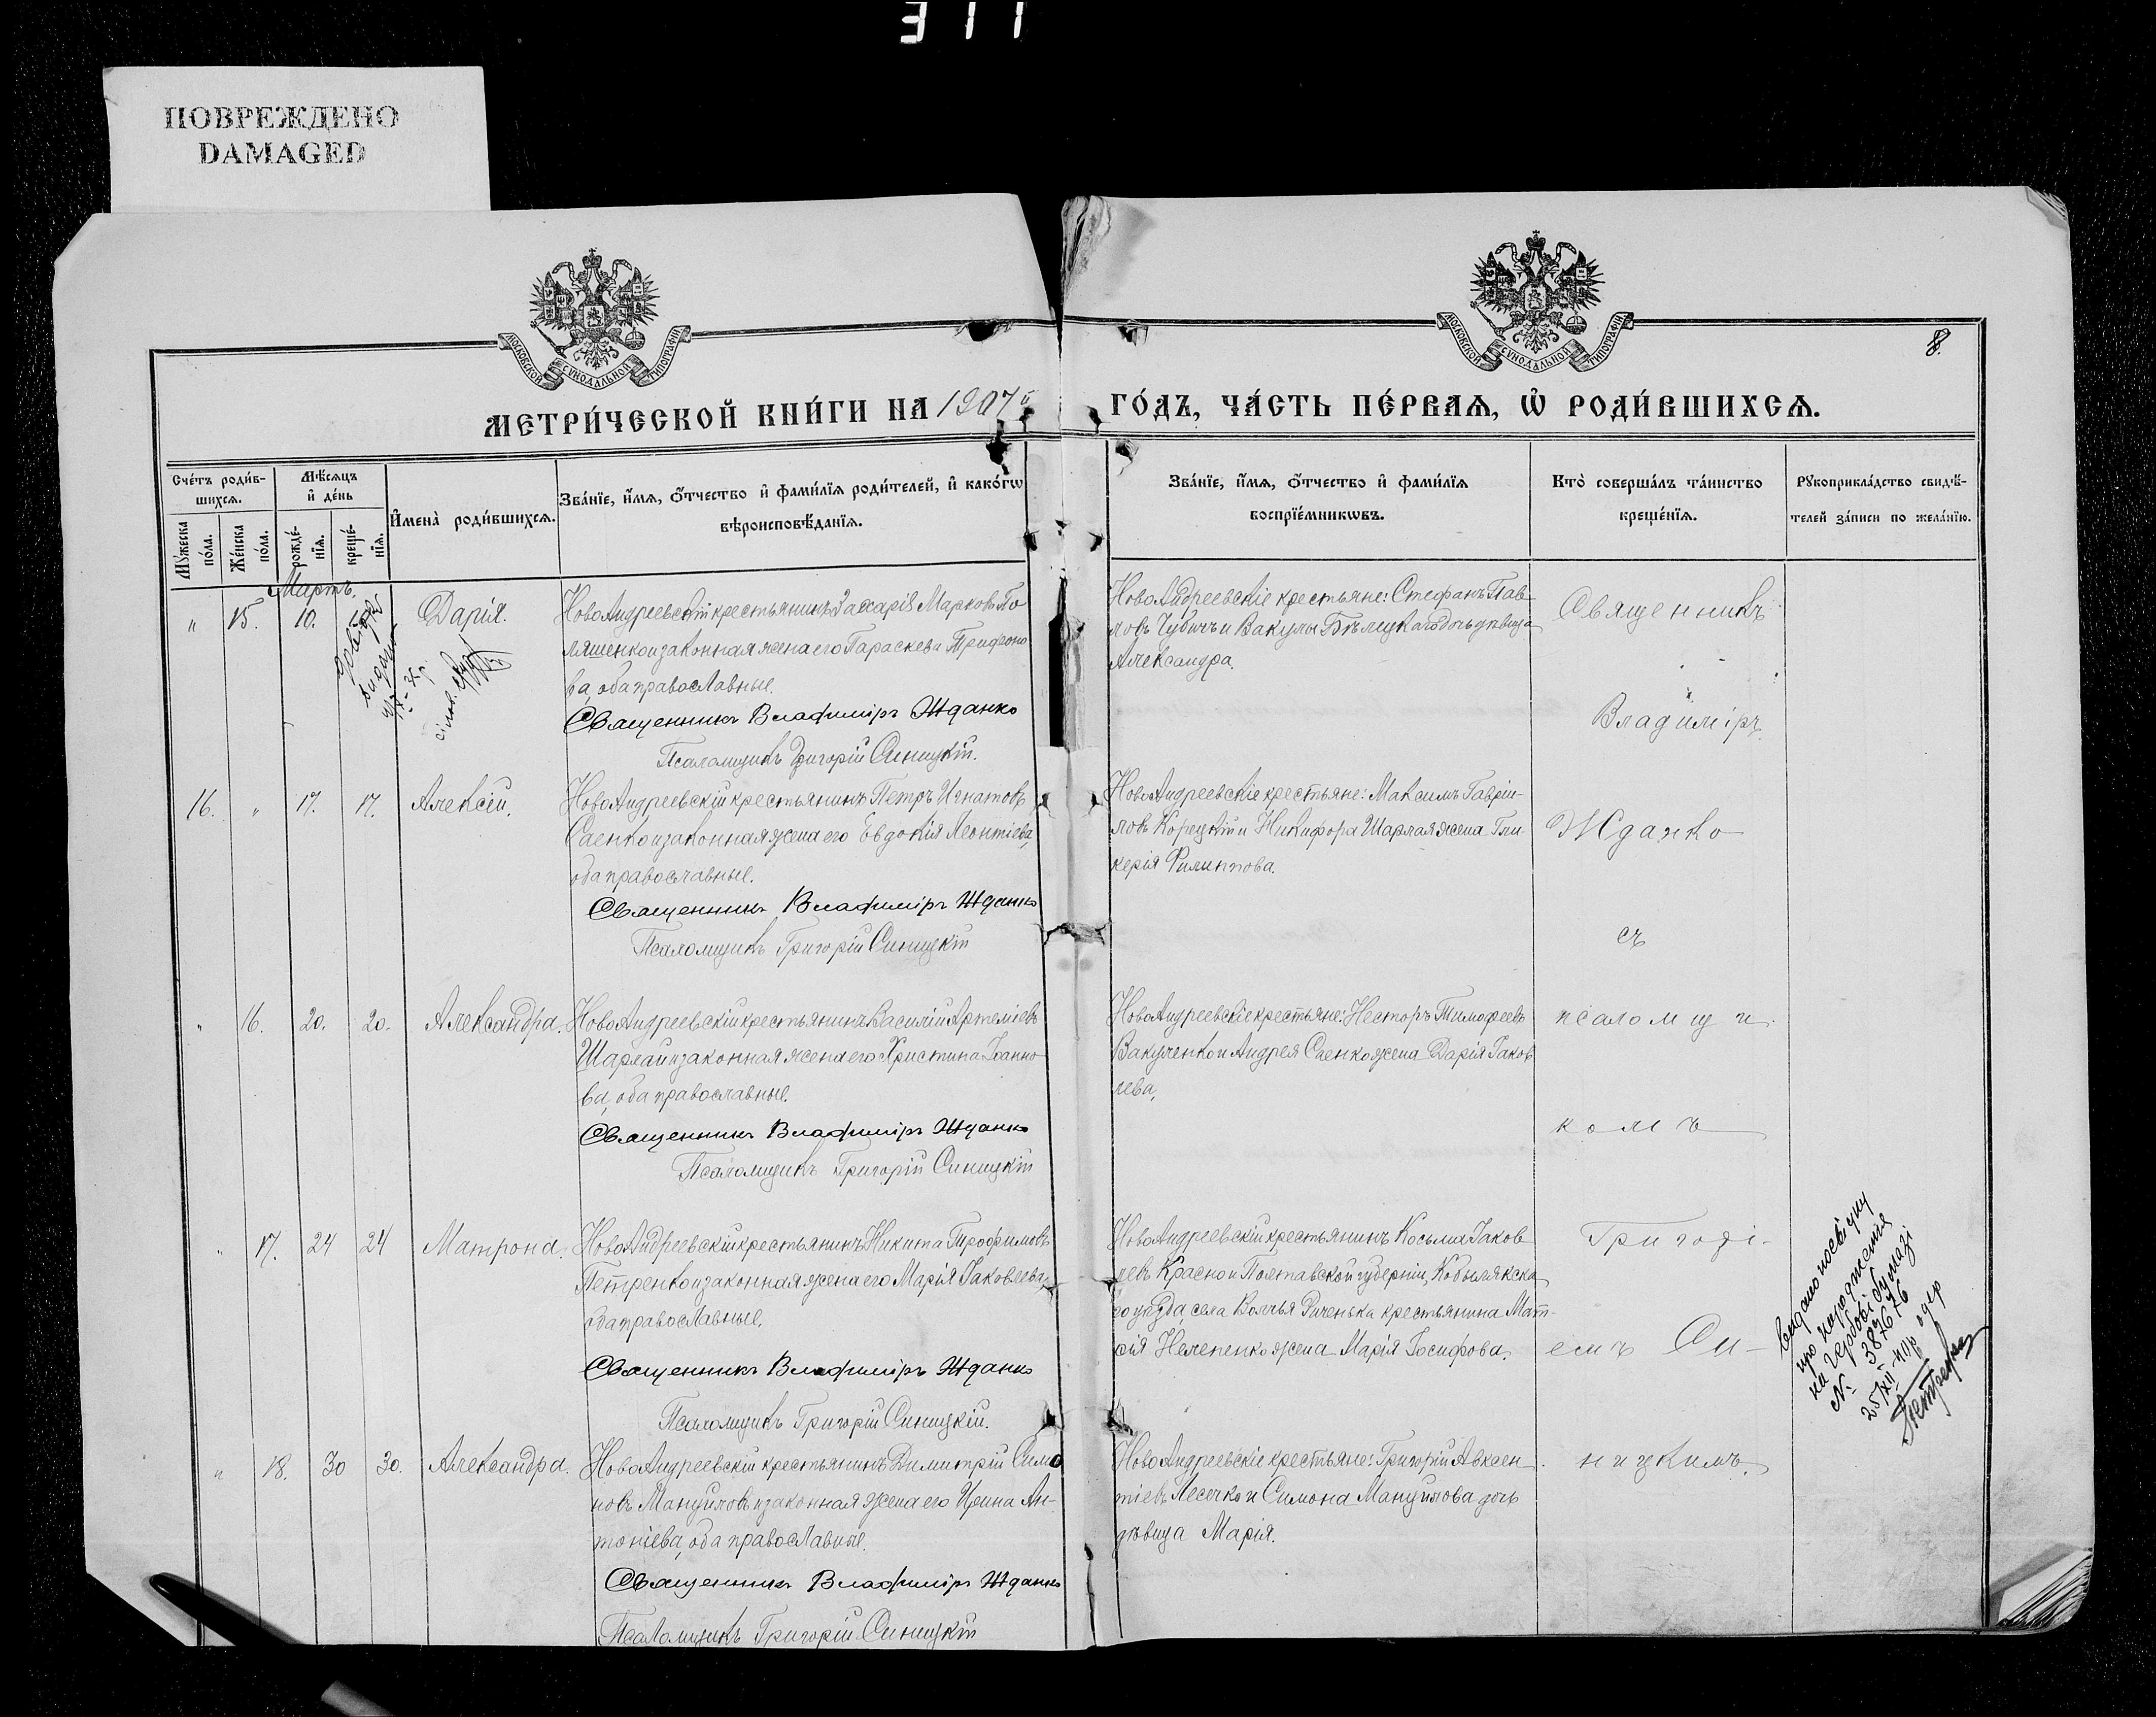 311
ПОВРЕЖДЕНО
DAMAGED
МОСКОВСКОЙ СУНОДАЛЬНОЙ ТИПОГРАФІИ
МОСКОВСКОЙ СУНОДАЛЬНОЙ ТИПОГРАФІИ
8.
МЕТРИ́ЧЕСКОЙ КНИ́ГИ НА 1907й ГО́ДЪ, ЧА́СТЬ ПЕ́РВАѦ, Ѡ҆ РОДИ́ВШИХСѦ.
Сче́тъ роди́в-
шихсѧ.
Мꙋ́жеска по́ла.
Же́нска по́ла.
Мѣ́сѧцъ
и҆ де́нь
рожде́-
нїѧ.
креще́-
нїѧ.
И҆мена̀ роди́вшихсѧ.
Зва́нїе, и҆́мѧ, ѻ҆́тчество и҆ фами́лїѧ роди́телей, и҆ како́гѡ
вѣроисповѣ́данїѧ.
Зва́нїе, и҆́мѧ, ѻ҆́тчество и҆ фами́лїѧ
воспрїе́мникѡвъ.
Кто̀ соверша́лъ та́инство
креще́нїѧ.
Рꙋкоприкла́дство свидѣ́-
телей за́писи по жела́нїю.
Мартъ.
" 15. 10. Дарія.
НовоАндреевскій крестьянинъ Захарій Марковъ По
ляшенко и законная жена его Параскева Трифоно
ва, оба православные.
Священникъ Владиміръ Жданко
Псаломщикъ Григорій Синицкій.
НовоАндреевскіе крестьяне: Стефанъ Пав-
ловъ Чубичъ и Вакулы Бѣлецкаго дочь дѣвица
Александра.
Священникъ
Владиміръ
16. " 17. 17. Алексій.
НовоАндреевскій крестьянинъ Петръ Игнатовъ
Саенко и законная жена его Евдокія Леонтіева,
оба православные.
Священникъ Владиміръ Жданко
Псаломщикъ Григорій Синицкій
НовоАндреевскіе крестьяне: Максимъ Гаврі-
ловъ Корецкій и Никифора Шарлая жена Гли-
керія Филиппова.
Жданко
съ
" 16. 20. 20. Александра.
НовоАндреевскій крестьянинъ Василій Артеміевъ
Шарлай и законная жена его Христина Іоанно
ва, оба православные.
Священникъ Владиміръ Жданко
Псаломщикъ Григорій Синицкій
НовоАндреевскіе крестьяне: Несторъ Тимофеевъ
Вакуленко и Андрея Саенко жена Дарія Іаков
лева,
псаломщи
комъ
" 17. 24 24 Матрона.
НовоАндреевскій крестьянинъ Никита Трофимовъ
Петренко и законная жена его Марія Іаковлева,
оба православные.
Священникъ Владиміръ Жданко
Псаломщикъ Григорій Синицкій.
НовоАндреевскій крестьянинъ Косьма Іаков
левъ Красно и Полтавской губерніи, Кобылякска
го уѣзда, села Волчья Риченька крестьянина Мат-
фія Нелепенко жена Марія Іосифова.
Григорі-
емъ Си-
Видано посвідку
про народження
на гербовій бумазі
№ 387676
25/XII
" 18. 30 30. Александра.
НовоАндреевскій крестьянинъ Димитрій Симо
новъ Мануиловъ и законная жена его Ирина Ан-
тоніева, оба православные.
Священникъ Владиміръ Жданко
Псаломщикъ Григорій Синицкій
НовоАндреевскіе крестьяне: Григорій Авксен
тіевъ Лесечко и Симона Мануилова дочь
дѣвица Марія.
ницкимъ.